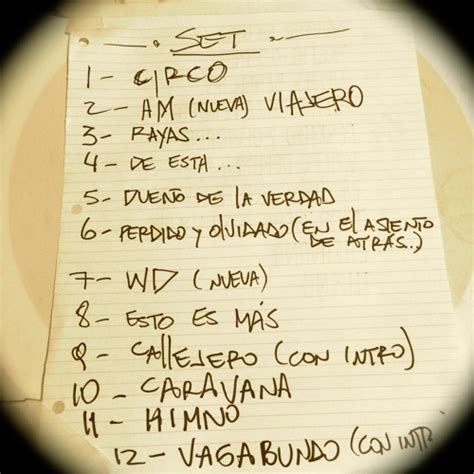 SET
1 - CIRCO
2 - AM (NUEVA) VIAJERO
3 - RAYAS...
4 - DE ESTA...
5 - DUEÑO DE LA VERDAD
6 - PERDIDO Y OLVIDADO (EN EL ASIENTO
DE ATRÁS..)
7 - WD (NUEVA)
8 - ESTO ES MÁS
9 - CALLEJERO (CON INTRO)
10 - CARAVANA
11 - HIMNO
12 - VAGABUNDO (CON INTR